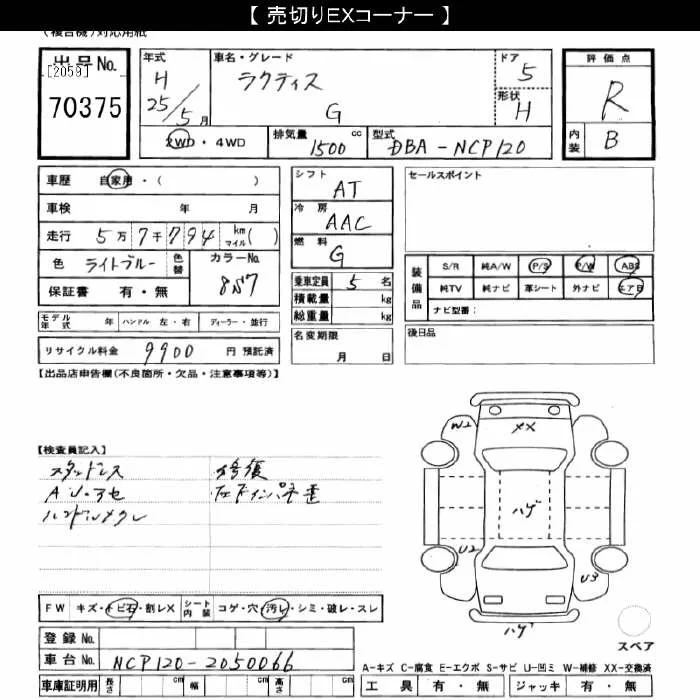 【 売切りEXコーナー 】
(複合機)対応用紙
出品No.
[2059]
70375
年式
H
25/5月
車名・グレード
ラクティス
G
ドア
5
形状
H
評価点
R
内装
B
2WD・4WD
排気量 1500 cc
型式 DBA-NCP120
車歴 自家用・( )
車検 年 月
走行 5万7千794 km マイル( )
色 ライトブルー 色替 カラーNo. 8S7
保証書 有・無
シフト AT
冷房 AAC
燃料 G
乗車定員 5 名
積載量 kg
総重量 kg
セールスポイント
装備品
S/R 純A/W P/S P/W ABS
純TV 純ナビ 革シート 外ナビ エアB
ナビ型番:
モデル年式 年 ハンドル 左・右 ディーラー・並行
名変期限 月 日
後日品
リサイクル料金 9900 円 預託済
【出品店申告欄(不良箇所・欠品・注意事項等)】
【検査員記入】
スタッドレス 修復
AU・アセ 左Fインパネ歪
ハンドルメクレ
W2 XX
ハゲ
U2 U3
ハゲ
スペア
FW キズ・トビ石・割レX シート内装 コゲ・穴・汚レ・シミ・破レ・スレ
登録No.
車台No. NCP120-2050066
車庫証明用 長さ cm 幅 cm 高さ cm
A-キズ C-腐食 E-エクボ S-サビ U-凹ミ W-補修 XX-交換済
工具 有・無 ジャッキ 有・無